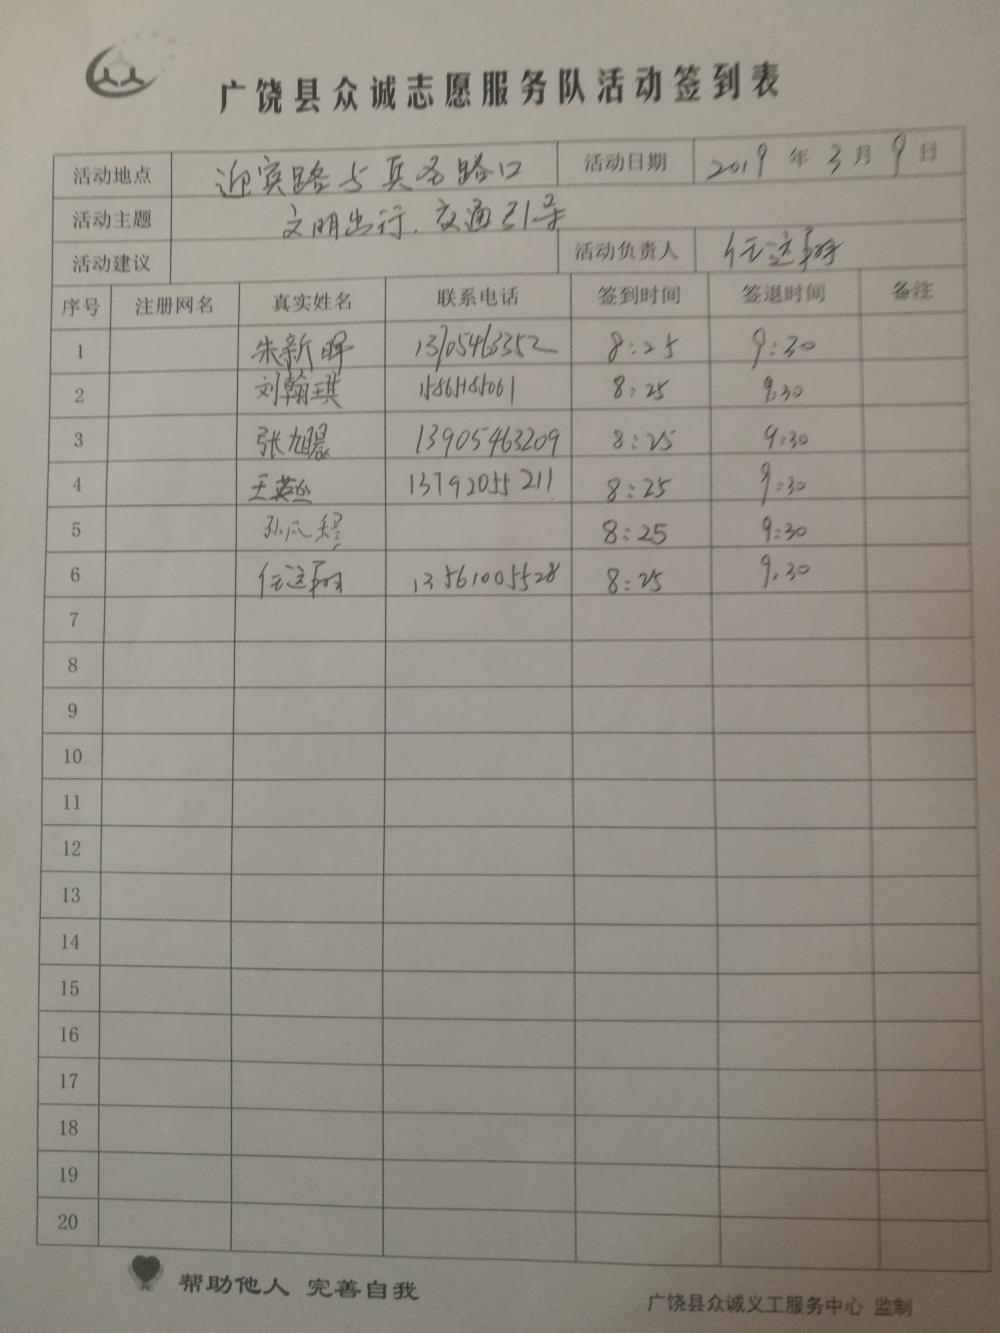 广饶县众诚志愿服务队活动签到表
活动地点 迎宾路与兵圣路口 活动日期 2019年3月9日
活动主题 文明出行.交通引导
活动建议 活动负责人
序号 注册网名 真实姓名 联系电话 签到时间 签退时间 备注
1 朱新晖 13705463352 8:25 9:30
2 刘翰琪 8:25 9:30
3 张旭晨 13905463209 8:25 9:30
4 王英 13792055211 8:25 9:30
5 8:25 9:30
6 13561005528 8:25 9:30
7
8
9
10
11
12
13
14
15
16
17
18
19
20
帮助他人 完善自我
广饶县众诚义工服务中心 监制